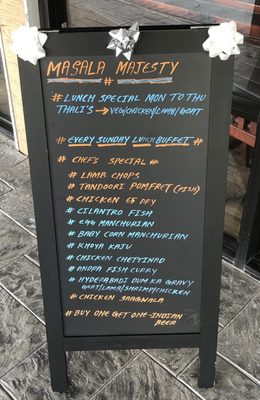 MASALA MAJESTY
#
# LUNCH SPECIAL MON TO THU
THALI'S → VEG/CHICKEN/LAMB/GOAT
# EVERY SUNDAY LUNCH BUFFET #
# CHEF'S SPECIAL #
# LAMB CHOPS
# TANDOORI POMFRET (FISH)
# CHICKEN 65 DRY
# CILANTRO FISH
# EGG MANCHURIAN
# BABY CORN MANCHURIAN
# KHOYA KAJU
# CHICKEN CHETTINAD
# ANDRA FISH CURRY
# HYDERABADI DUM KA GRAVY
GOAT/LAMB/SHRIMP/CHICKEN
# CHICKEN SAAGWALA
# BUY ONE GET ONE-INDIAN
BEER